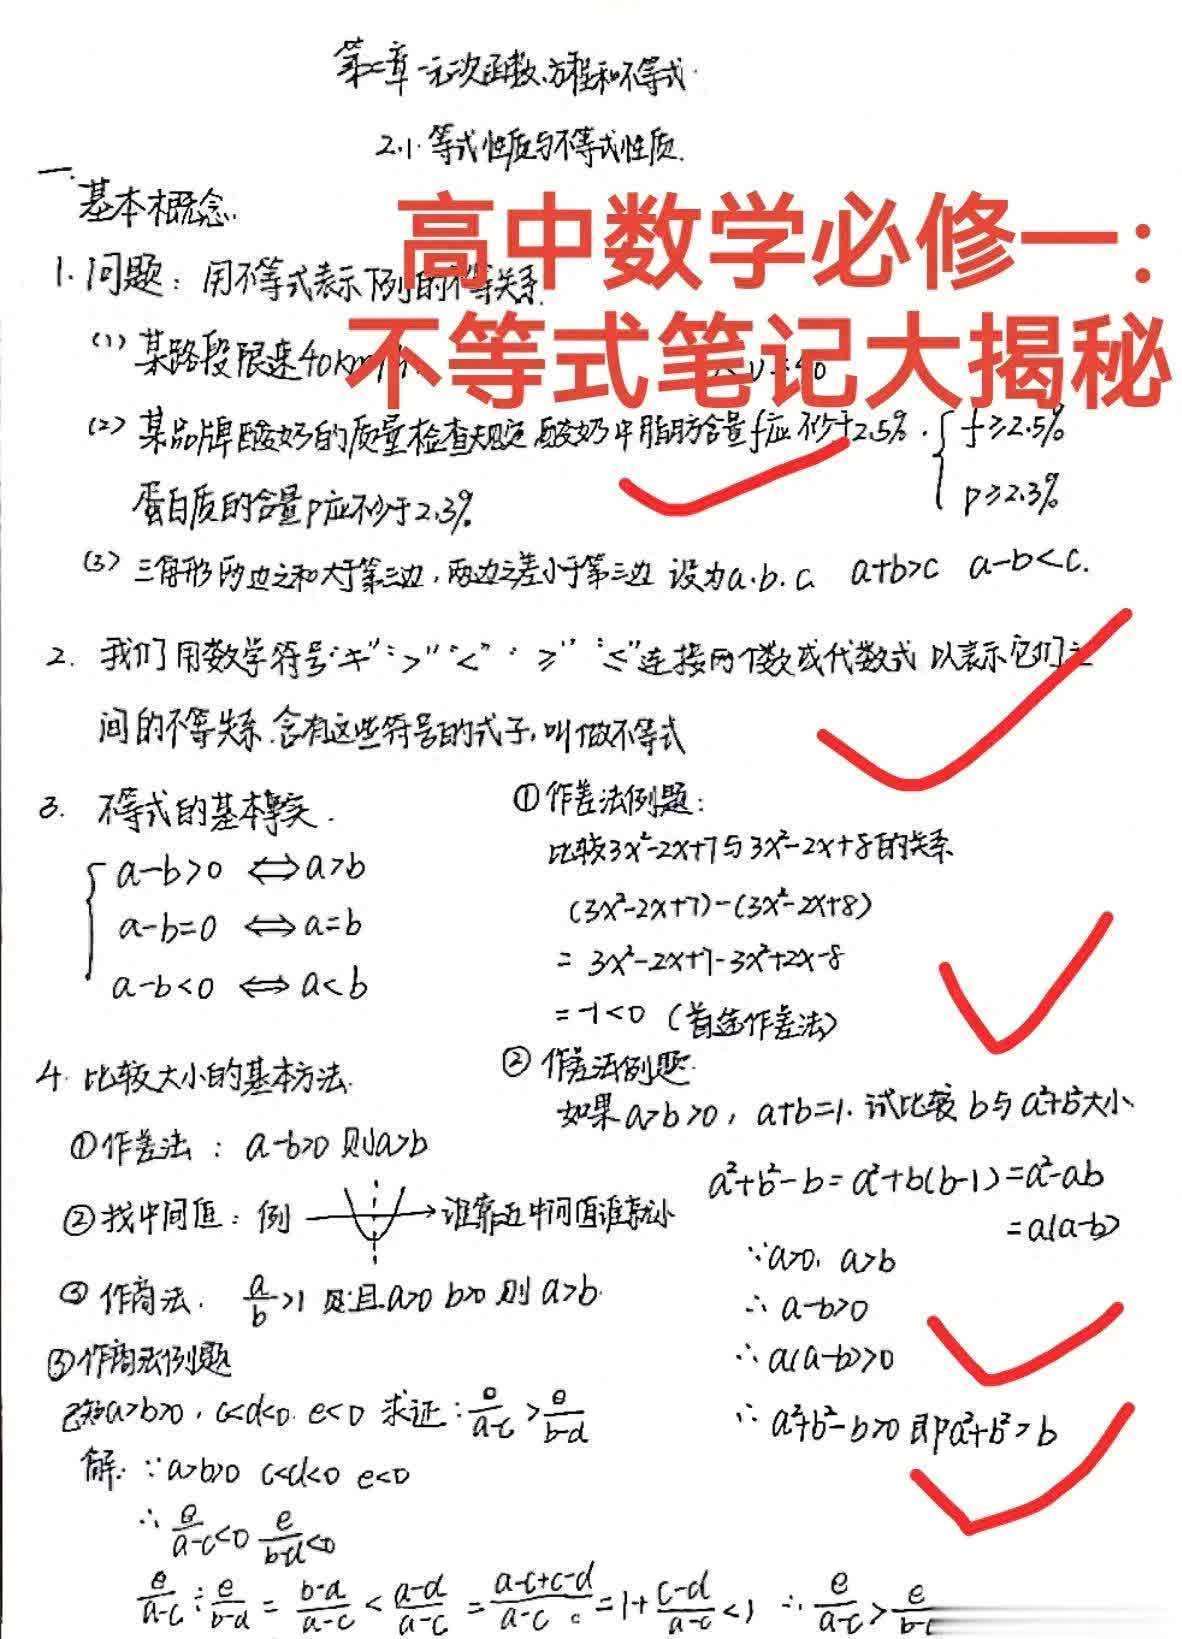 第二章 一元二次函数、方程和不等式.
2.1. 等式性质与不等式性质.
一.
基本概念.
高中数学必修一:
不等式笔记大揭秘
1. 问题: 用不等式表示下列的不等关系.
(1) 某路段限速40km/h
(2) 某品牌酸奶的质量检查规定 酸奶中脂肪含量f应不少于2.5%. { f≥2.5%
蛋白质的含量p应不少于2.3% p≥2.3%
(3) 三角形两边之和大于第三边, 两边之差小于第三边 设为a.b.c. a+b>c a-b<c.
2. 我们用数学符号“≠”“>”“<”“≥”“≤”连接两个数或代数式 以表示它们之
间的不等关系. 含有这些符号的式子, 叫做不等式
3. 不等式的基本事实.
a-b>0 ⟺ a>b
a-b=0 ⟺ a=b
a-b<0 ⟺ a<b
① 作差法例题:
比较3x²-2x+7与3x²-2x+8的关系
(3x²-2x+7)-(3x²-2x+8)
= 3x²-2x+7-3x²+2x-8
=-1<0 (首选作差法)
4. 比较大小的基本方法.
①作差法: a-b>0 则a>b
②找中间值: 例 谁靠近中间值谁就小
③ 作商法. a/b>1 且a>0 b>0 则 a>b.
② 作差法例题.
如果a>b>0, a+b=1. 试比较 b与a²+b²大小
a²+b²-b=a²+b(b-1)=a²-ab
=a(a-b)
∵a>0, a>b
∴ a-b>0
∴ a(a-b)>0
∴ a²+b²-b>0 即a²+b²>b
③作商法例题
已知a>b>0, c<d<0. e<0 求证: e/(a-c) > e/(b-d)
解: ∵a>b>0 c<d<0 e<0
∴ e/(a-c)<0 e/(b-d)<0
e/(a-c) ÷ e/(b-d) = (b-d)/(a-c) < (a-d)/(a-c) = (a-c+c-d)/(a-c) = 1+(c-d)/(a-c) <1 ∴ e/(a-c) >